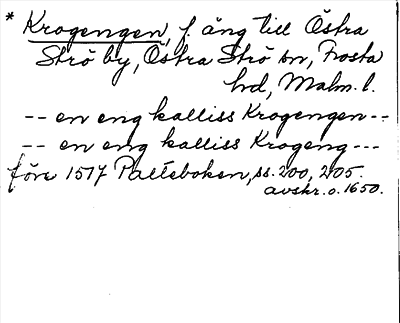 * Krogengen, f. äng till Östra
Strö by, Östra Strö sn, Frosta
hd, Malm. l.
-- en eng kalliss Krogengen --
-- en eng kalliss Krogeng ---
före 1517 Palteboken, ss. 200, 205.
avskr. o. 1650.